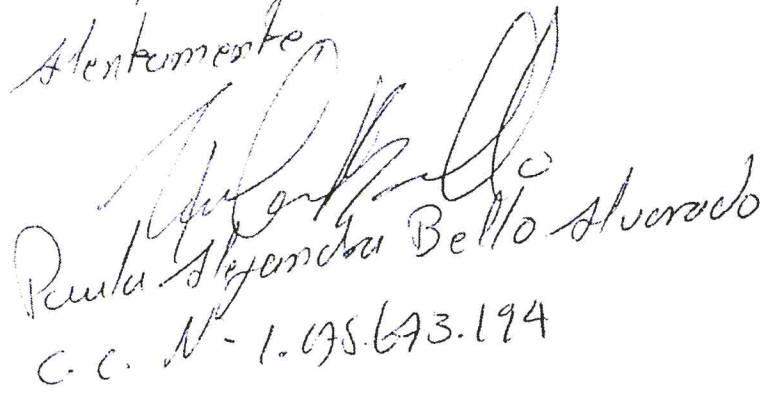 Atentamente
Paula Alejandra Bello Alvarado
C.C. N- 1.075.673.194